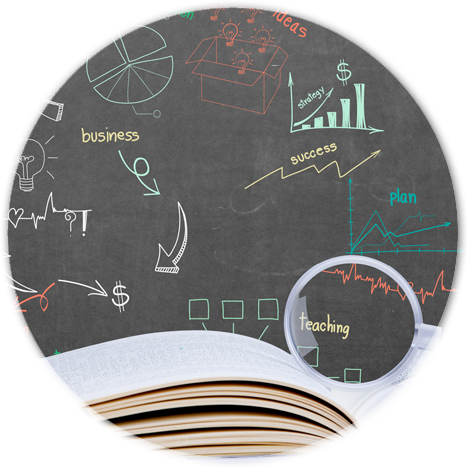 ideas
strategy
$
business
success
plan
?!
$
teaching